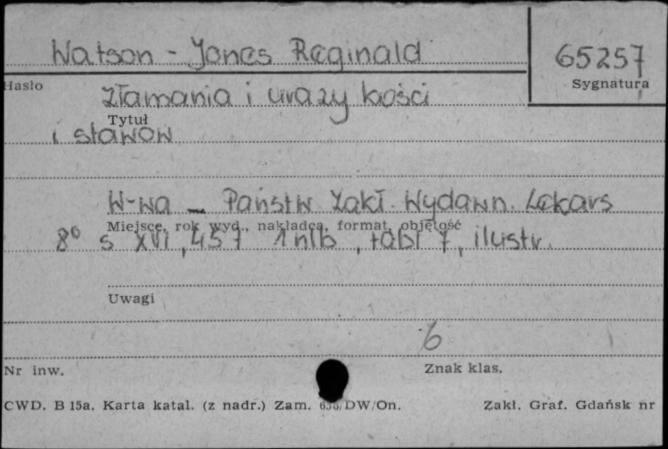 Watson - Jones Reginald
65257
Hasło
Sygnatura
Złamania i urazy kości
Tytuł
i stawów
W-wa - Państw Zakł. Wydawn. Lekars
Miejsce, rok wyd., nakładca, format, objętość
8° s XVI, 457 1 nlb, tabl 7, ilustr.
Uwagi
6
Nr inw.
Znak klas.
CWD. B 15a. Karta katal. (z nadr.) Zam. DW/On.
Zakł. Graf. Gdańsk nr